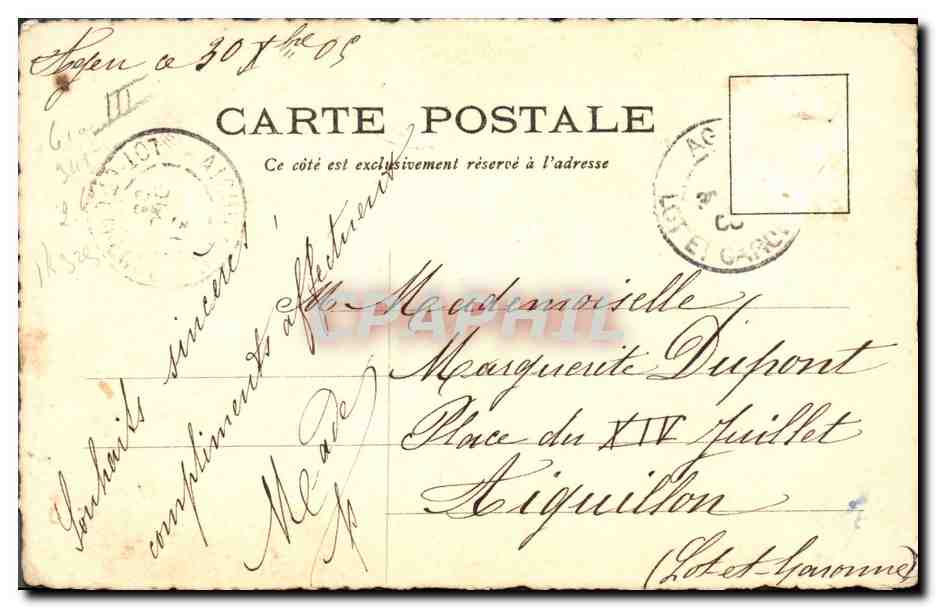 Agen ce 30 Xbre 05
CARTE POSTALE
Ce côté est exclusivement réservé à l'adresse
Mademoiselle
Marguerite Dupont
Place du XIV Juillet
Aiguillon
(Lot-et-Garonne)
Souhaits sincères !
compliments affectueux
III
LOT ET GARO
CPAPHIL